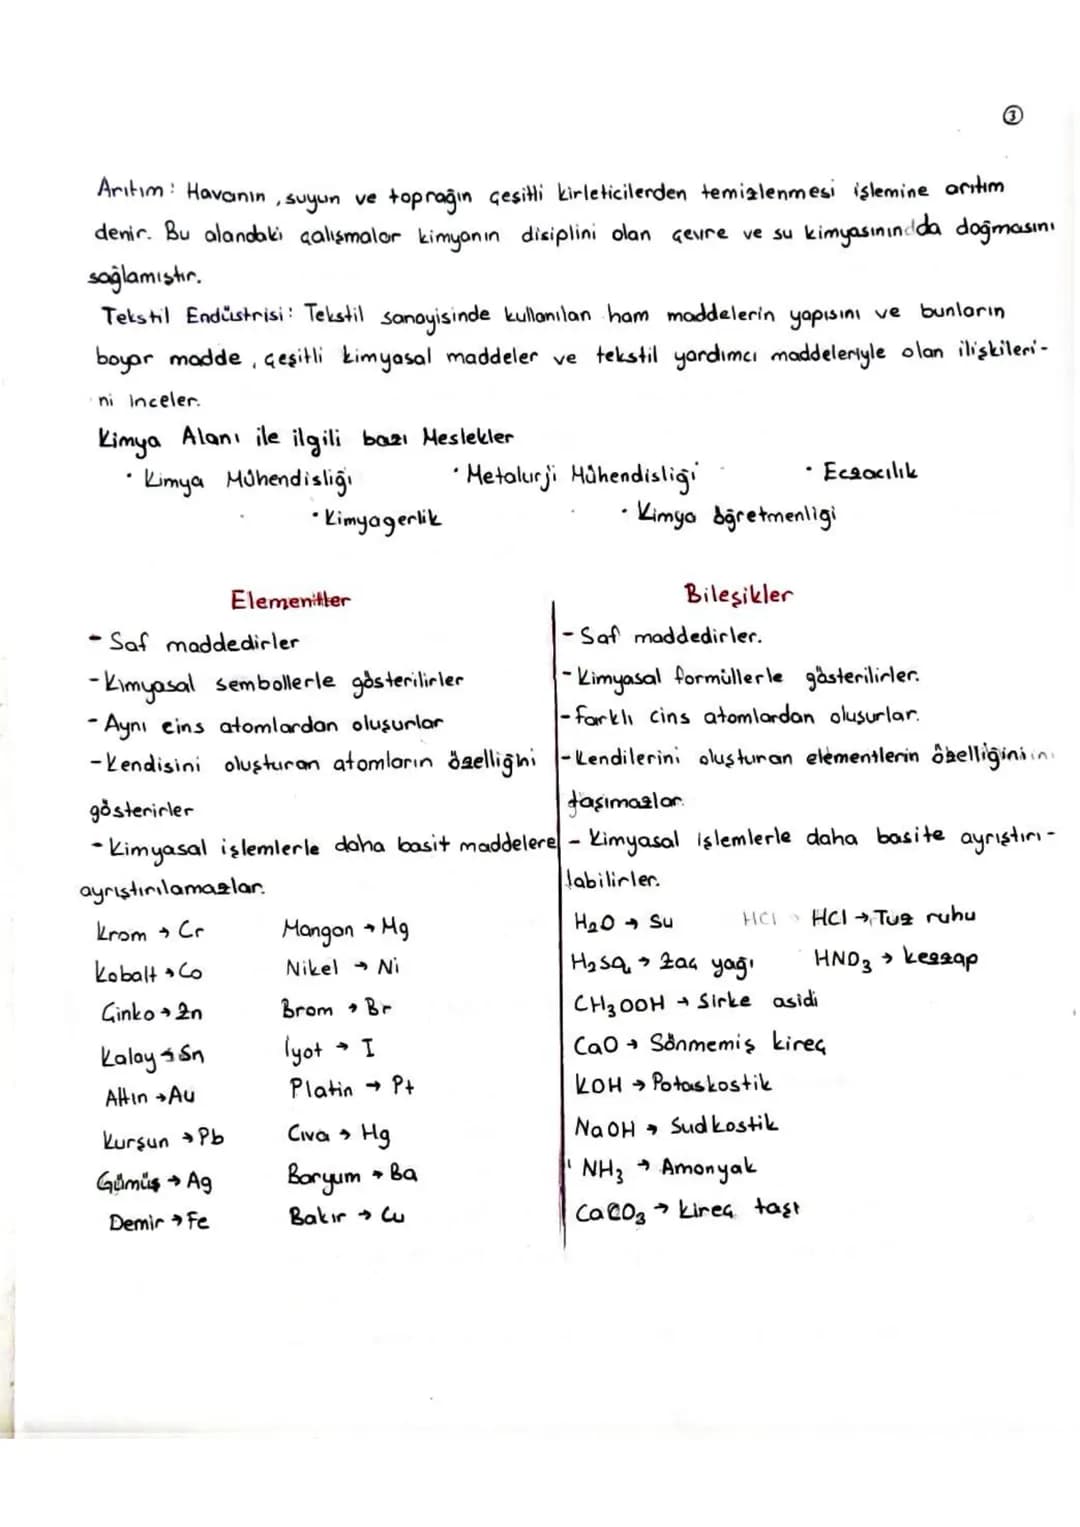 ③
Arıtım: Havanın, suyun ve toprağın çeşitli kirleticilerden temizlenmesi işlemine arıtım
denir. Bu alandaki çalışmalar kimyanın disiplini olan çevre ve su kimyasınında doğmasını
sağlamıştır.
Tekstil Endüstrisi: Tekstil sanayisinde kullanılan ham maddelerin yapısını ve bunların
boyar madde, çeşitli kimyasal maddeler ve tekstil yardımcı maddeleriyle olan ilişkileri-
ni inceler.
Kimya Alanı ile ilgili bazı Meslekler
· Kimya Mühendisliği · Metalurji Mühendisliği · Eczacılık
· Kimyagerlik · Kimya öğretmenligi
Elementler
- Saf maddedirler
- Kimyasal sembollerle gösterilirler
- Aynı cins atomlardan oluşurlar
- Kendisini oluşturan atomların özelliğni
gösterirler
- Kimyasal işlemlerle daha basit maddelere
ayrıştırılamazlar.
Krom → Cr Mangan → Mg
Kobalt → Co Nikel → Ni
Çinko → Zn Brom → Br
Kalay → Sn İyot → I
Altın → Au Platin → Pt
Kurşun → Pb Cıva → Hg
Gümüş → Ag Baryum → Ba
Demir → Fe Bakır → Cu
Bileşikler
- Saf maddedirler.
- Kimyasal formüllerle gösterilirler.
- farklı cins atomlardan oluşurlar.
- Kendilerini oluşturan elementlerin özelliğini
taşımazlar.
- Kimyasal işlemlerle daha basite ayrıştırı-
labilirler.
H₂O → Su HCl HCl → Tuz ruhu
H₂SO₄ → Zaç yağı HNO₃ → kezzap
CH₃OOH → Sirke asidi
CaO → Sönmemiş kireç
KOH → Potaskostik
NaOH → Sudkostik
NH₃ → Amonyak
CaCO₃ → kireç taşı